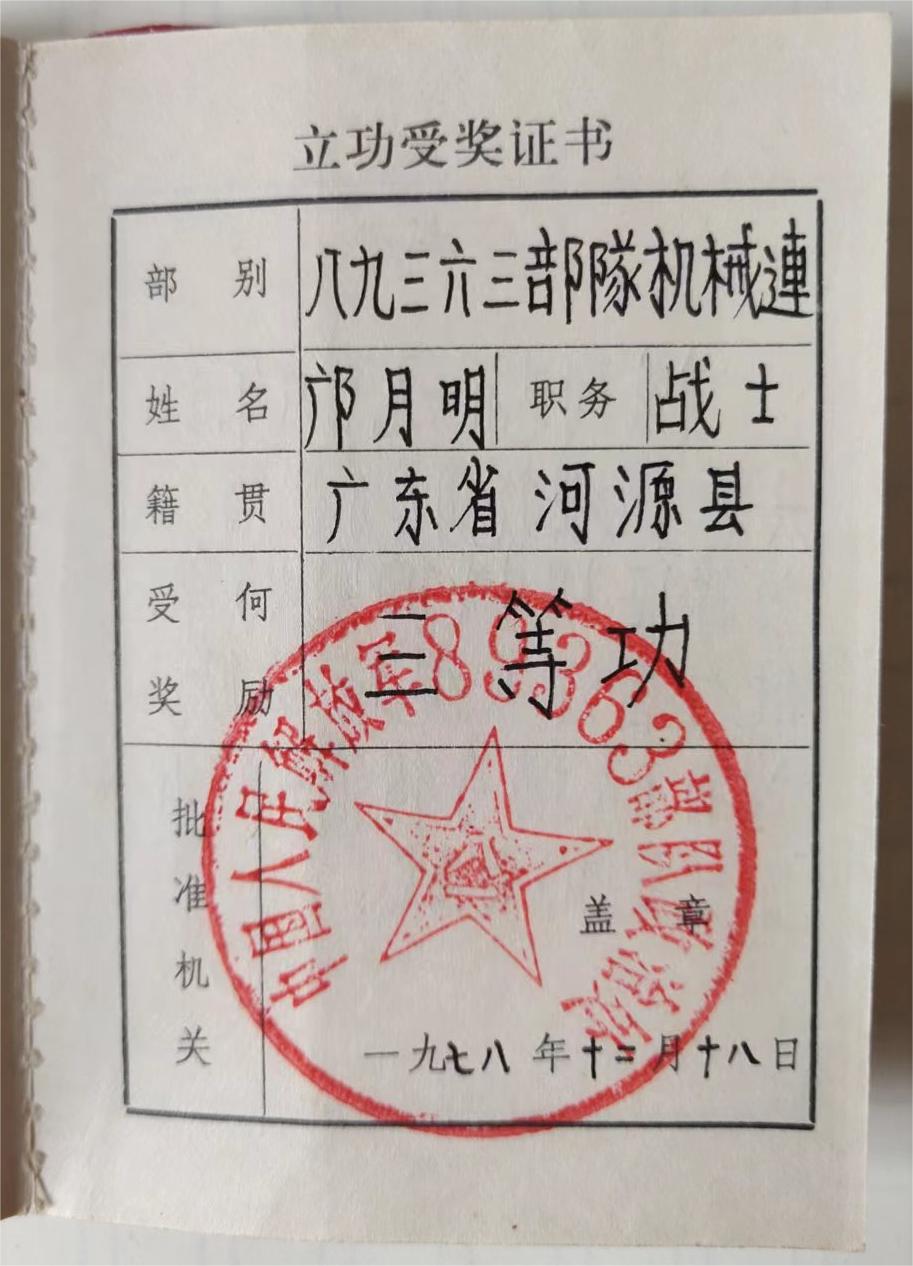 立功受奖证书
部别 八九三六三部隊机械連
姓名 邝月明 职务 战士
籍贯 广东省河源县
受何奖励 三等功
批准机关
中国人民解放军89363部队政治处
盖章
一九七八年十二月十八日